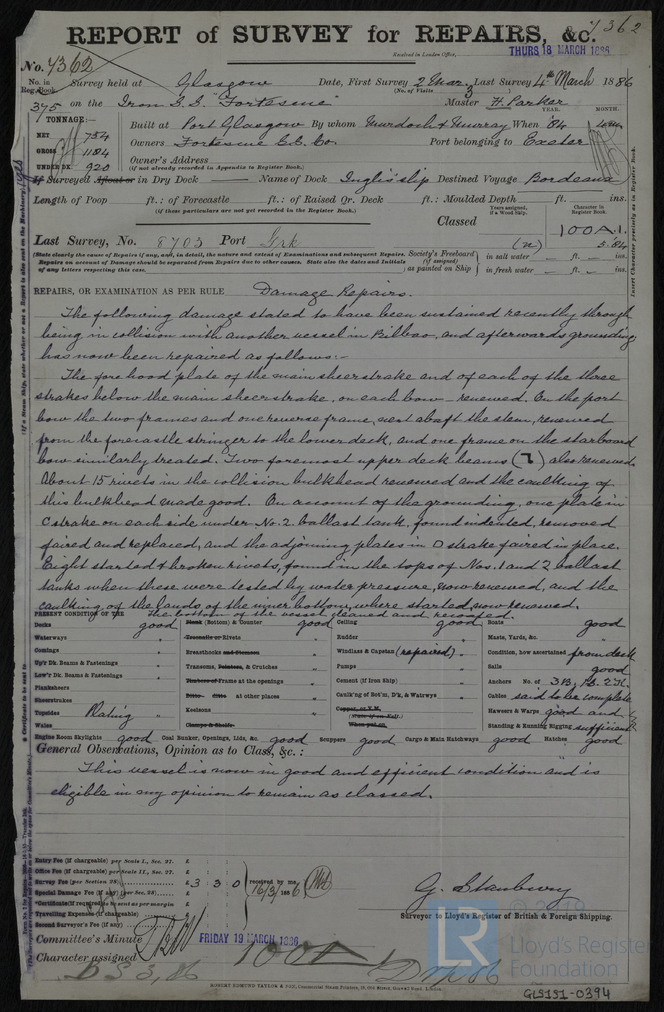 7362
REPORT of SURVEY for REPAIRS, &c.
Received in London Office, THURS 18 MARCH 1886
No. 7362
No. in Reg. Book. Survey held at Glasgow Date, First Survey 2 Mar, Last Survey 4th March 1886
(No. of Visits 3)
375 on the Iron S.S. "Fortescue" Master H. Parker
TONNAGE:— YEAR. MONTH.
NET 754 Built at Port Glasgow By whom Murdoch & Murray When '84
GROSS 1184 Owners Fortescue S.S. Co. Port belonging to Exeter
UNDER DK. 920 Owner's Address
(if not already recorded in Appendix to Register Book.)
If Surveyed Afloat or in Dry Dock — Name of Dock Inglis' slip Destined Voyage Bordeaux
Length of Poop ft.: of Forecastle ft.: of Raised Qr. Deck ft.: Moulded Depth ft. ins.
(if these particulars are not yet recorded in the Register Book.)
Years assigned, if a Wood Ship. Character in Register Book.
Classed 100A.1.
Last Survey, No. 8703 Port Grk 5.84
(State clearly the cause of Repairs if any, and, in detail, the nature and extent of Examinations and subsequent Repairs. Repairs on account of Damage should be separated from Repairs due to other causes. State also the dates and Initials of any letters respecting this case.
Society's Freeboard (if assigned) as painted on Ship in salt water — ft. — ins.
in fresh water — ft. — ins.
REPAIRS, OR EXAMINATION AS PER RULE Damage Repairs.
The following damage stated to have been sustained recently through
being in collision with another vessel in Bilbao, and afterwards grounding
has now been repaired as follows:-
The fore hood plate of the main sheerstrake and of each of the three
strakes below the main sheerstrake, on each bow renewed. On the port
bow the two frames and one reverse frame, next abaft the stem, renewed
from the forecastle stringer to the lower deck, and one frame on the starboard
bow similarly treated. Two foremost upper deck beams also renewed.
About 15 rivets in the collision bulkhead renewed and the caulking of
this bulkhead made good. On account of the grounding, one plate in
C strake on each side under No. 2 ballast tank, found indented, removed
faired and replaced, and the adjoining plates in D strake faired in place.
Eight started & broken rivets, found in the tops of Nos. 1 and 2 ballast
tanks when these were tested by water pressure, now renewed, and the
caulking of the lands of the inner bottom, where started, now renewed.
The bottom of the vessel cleaned and recoated.
PRESENT CONDITION OF THE
Decks good Plank (Bottom) & Counter good Ceiling good Boats good
Waterways " Treenails or Rivets " Rudder " Masts, Yards, &c. "
Comings " Breasthooks and Stemson " Windlass & Capstan (repaired) " Condition, how ascertained from deck
Up'r Dk. Beams & Fastenings " Transoms, Pointers, & Crutches " Pumps " Sails good
Low'r Dk. Beams & Fastenings " Timbers or Frame at the openings " Cement (if Iron Ship) " Anchors No. of 3B, 1S. 2K.
Plankshears Ditto Ditto at other places " Caulk'ng of Bot'm, D'k, & Watrwys " Cables said to be complete
Sheerstrakes " Keelsons " Copper, or Y.M. Hawsers & Warps good and
Topsides Plating Clamps & Shelfs Standing & Running Rigging sufficient
Wales "
Engine Room Skylights good Coal Bunker, Openings, Lids, &c. good Scuppers good Cargo & Main Hatchways good Hatches good
General Observations, Opinion as to Class, &c.:
This vessel is now in good and efficient condition and is
eligible in my opinion to remain as classed.
Entry Fee (if chargeable) per Scale I., Sec. 27. £
Office Fee (if chargeable) per Scale II., Sec. 27. £
Survey Fee (per Section 28) £ 3 3 0 received by me, 16/3/1886
Special Damage Fee (if any) (per Sec. 28) £
*Certificate (if required) to be sent as per margin
Travelling Expenses (if chargeable) £
Second Surveyor's Fee (if any) £
G. Stanbury
Surveyor to Lloyd's Register of British & Foreign Shipping.
Committee's Minute FRIDAY 19 MARCH 1886
Character assigned 100A1
ROBERT EDMUND TAYLOR & SON
© 2019
LR
Lloyd's Register
Foundation
GLS151-0394